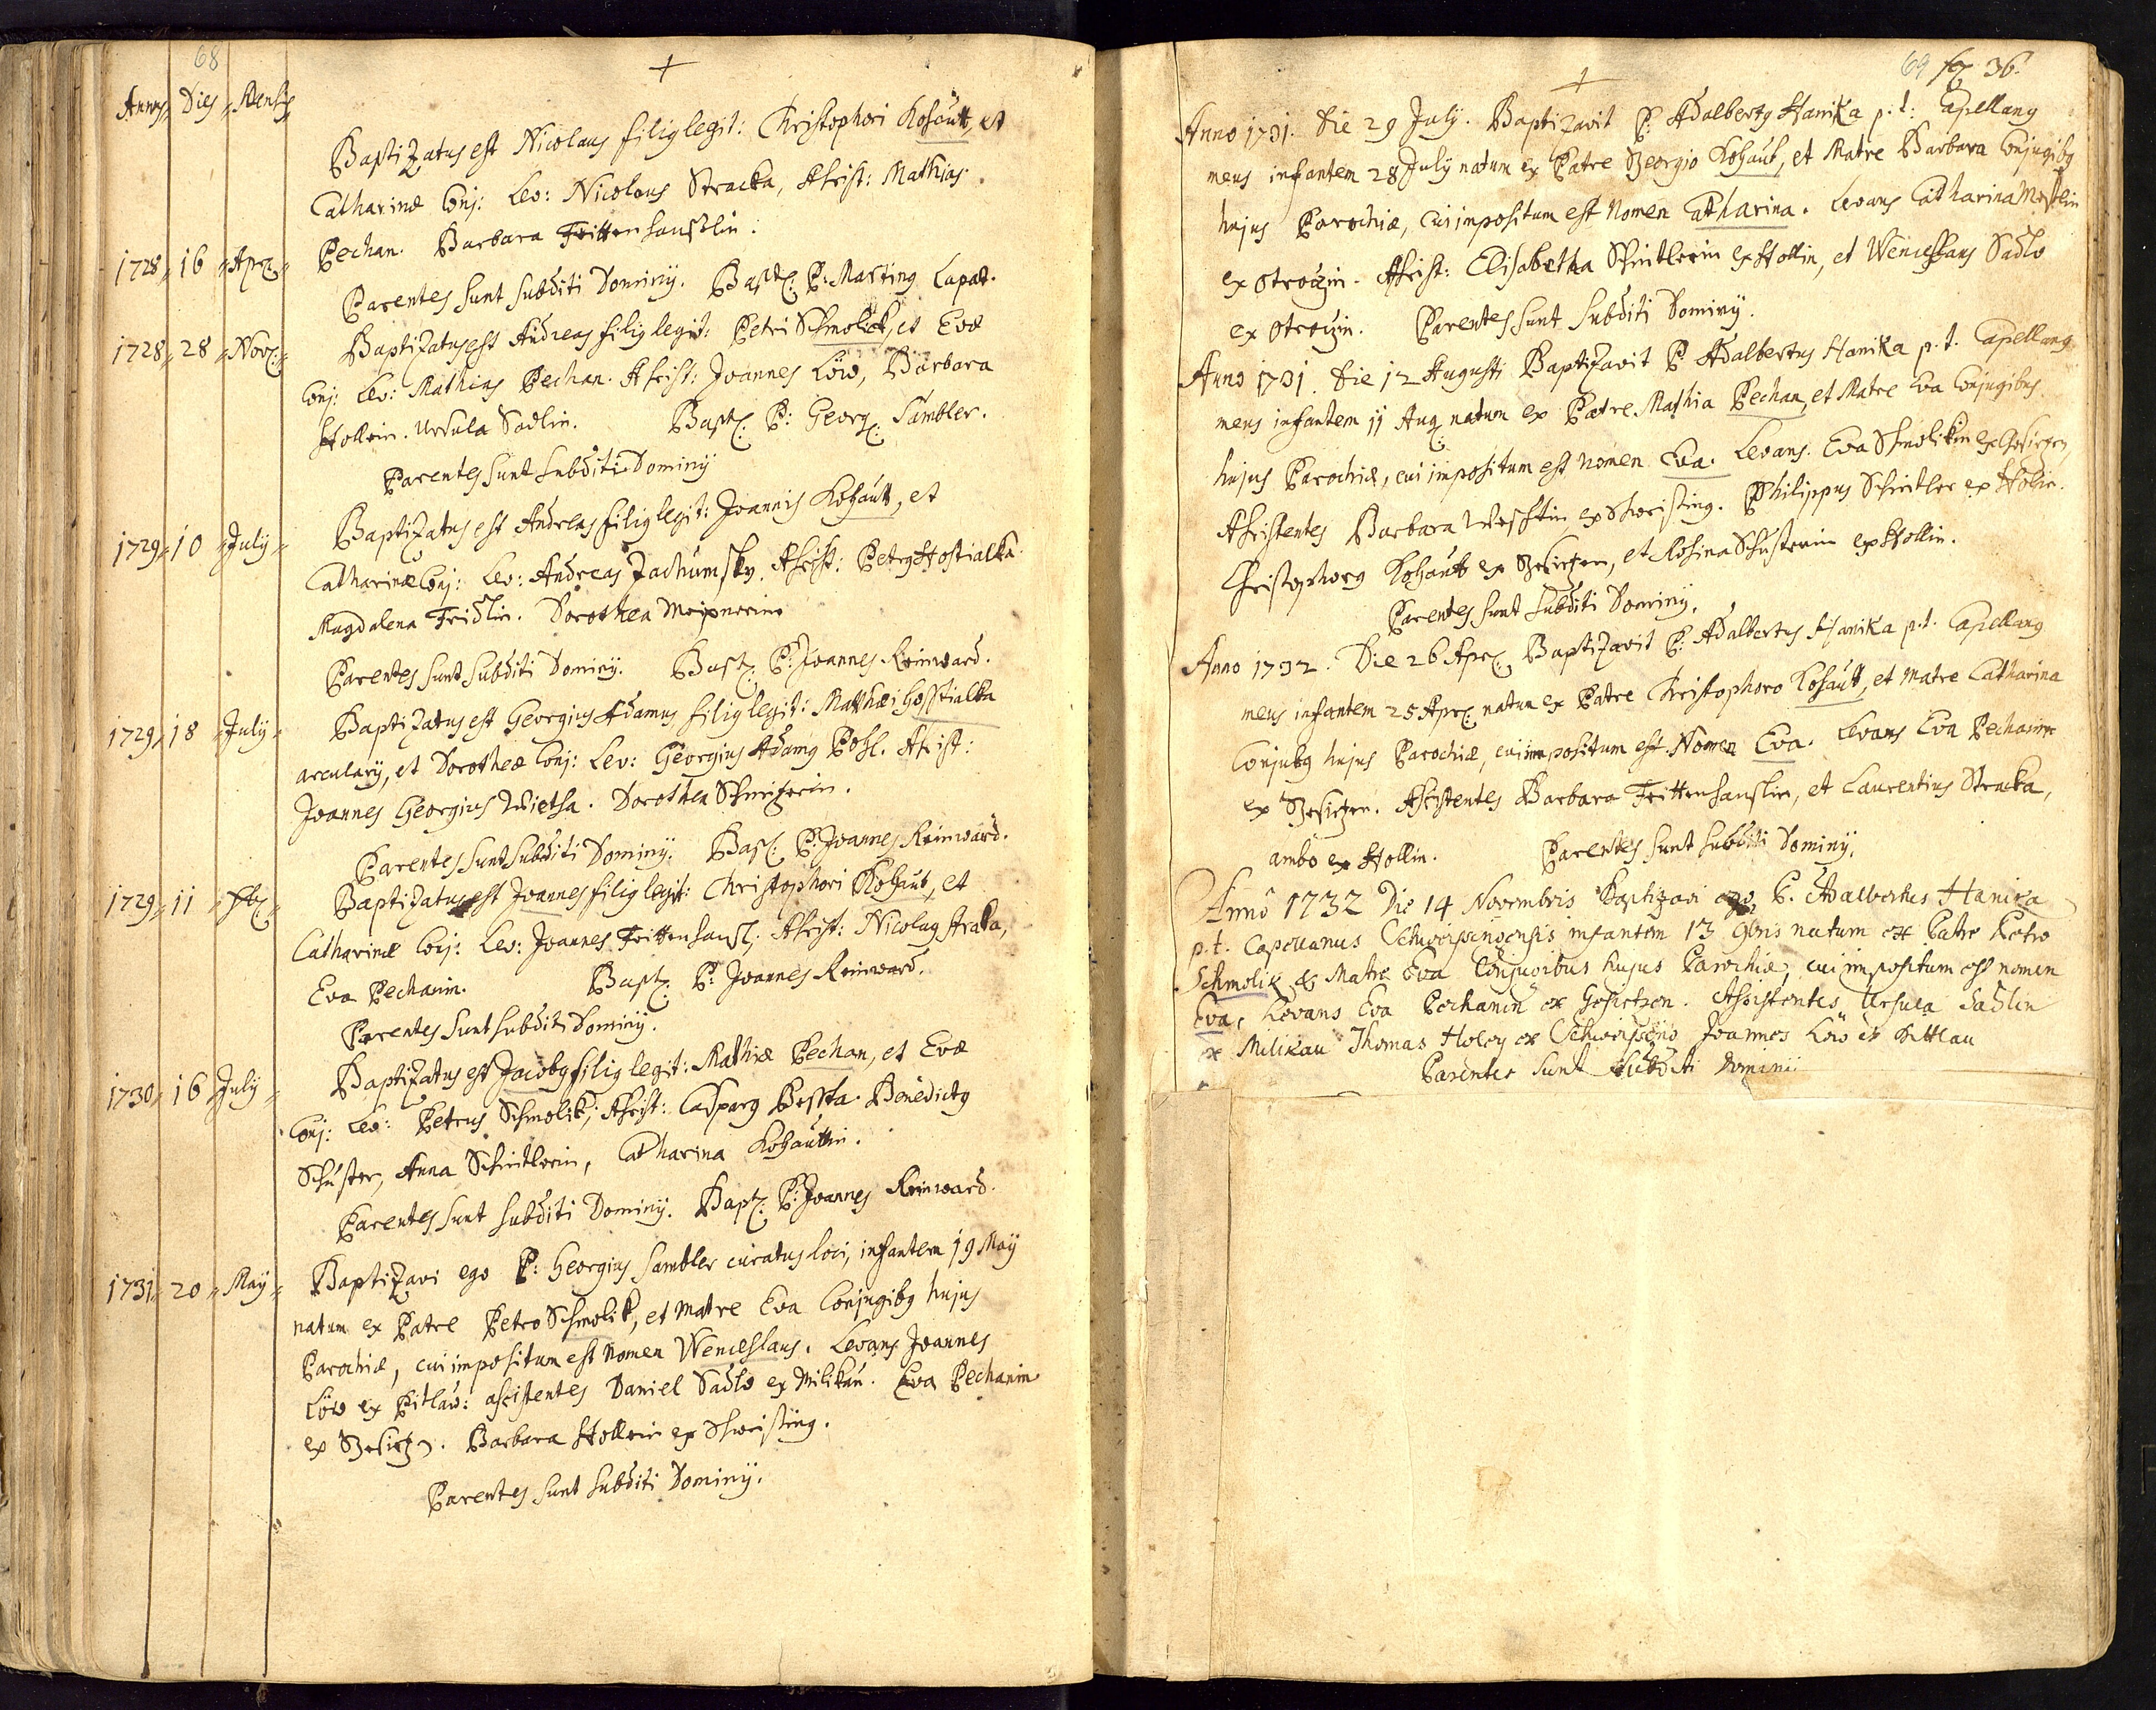 68
Annus Dies Mensis
Baptizatus est Nicolaus filius legit: Christophori Kohautt, et
Catharinæ Conj: Lev: Nicolaus Stracka, Assist: Mathias
1728 16 Apr: Pechan. Barbara Frittenhanslin.
Parentes sunt subditi Dominij. Bapt: P: Martinus Lapat.
1728 28 Nov: Baptizatus est Andreas filius legit: Petri Schmolick, et Evæ
Conj: Lev: Mathias Pechan. Assist: Joannes Löw, Barbara
Hollein. Ursula Sadlin. Bapt: P: Georg: Sambler.
Parentes sunt subditi Dominij
1729 10 July Baptizatus est Andreas filius legit: Joannis Kohautt, et
Catharinæ Conj: Lev: Andreas Zachumsky. Assist: Petrus Hostialka
Magdalena Fridlin. Dorothea
Parentes sunt subditi Dominij. Bapt: P: Joannes Reinward.
1729 18 July Baptizatus est Georgius Adamus filius legit: Matthæi Hosstialka
arcularij, et Dorotheæ Conj: Lev: Georgius Adamus Pohl. Assist:
Joannes Georgius Wietha. Dorothea
Parentes sunt subditi Dominij. Bap: P: Joannes Reinward.
1729 11 Baptizatus est Joannes filius legit: Christophori Kohaut, et
Catharinæ Conj: Lev: Joannes Frittenhansl; Assist: Nicolaus Straka,
Eva Pechanin. Bapt: P: Joannes Reinward.
Parentes sunt subditi Dominij.
1730 16 July Baptizatus est Jacobus filius legit: Mathiæ Pechan, et Evæ
Conj: Lev: Petrus Schmolik; Assist: Casparus Beshta. Benedictus
Schuster, Anna Schindlerin, Catharina Kohauttin.
Parentes sunt subditi Dominij. Bapt: P: Joannes Reinward.
1731 20 May Baptizavi ego P: Georgius Sambler curatus loci, infantem 19 May
natum ex Patre Petro Schmolik, et Matre Eva Conjugibus hujus
Parochiæ, cui impositum est Nomen Wenceslaus. Levans Joannes
Löw ex Pitlau: assistentes Daniel Sadlo ex Milikau. Eva Pechanin
ex Gesietzn. Barbara Hollein ex Schweissing.
Parentes sunt subditi Dominij.
69 36.
Anno 1731. Die 29 July. Baptizavit P: Adalbertus Hanika p.t: Capellanus
meus infantem 28 July natum ex Patre Georgio Kohaut, et Matre Barbara Conjugibus
hujus Parochiæ, cui impositum est Nomen Catharina. Levans Catharina
ex Otroczin. Assist: Elisabetha Schindlerin ex Hollin, et Wenceslaus Sadlo
ex Otroczin. Parentes sunt subditi Dominij.
Anno 1731. Die 12 Augusti Baptizavit P: Adalbertus Hanika p.t. Capellanus
meus infantem 11 Aug: natum ex Patre Mathia Pechan, et Matre Eva Conjugibus
hujus Parochiæ, cui impositum est nomen Eva. Levans. Eva Schmolikin ex Gesietzen,
Assistentes Barbara ex Schweissing. Philippus Schindler ex Holin.
Christophorus Kohaut ex Gesietzen, et Rosina Schusterin ex Hollin.
Parentes sunt subditi Dominij.
Anno 1732. Die 26 Apr: Baptizavit P: Adalbertus Hanika p.t. Capellanus
meus infantem 25 Apr: natum ex Patre Christophoro Kohautt, et Matre Catharina
Conjubus hujus Parochiæ, cui impositum est Nomen Eva. Levans Eva Pechanin
ex Gesietzen. Assistentes Barbara Frittenhanslin, et Laurentius Straka,
ambo ex Hollin. Parentes sunt subditi Dominij.
Anno 1732 Die 14 Novembris Baptizavi ego P. Adalbertus Hanika
p.t. Capellanus Schweissingensis infantem 13 9bris natum ex Patre Petro
Schmolik & Matre Eva Conjugibus hujus Parochiæ, cui impositum est nomen
Eva, Levans Eva Pechanin ex Gesietzen. Assistentes Ursula Sadlin
ex Milikau Thomas Holey ex Schweissing Joannes Löw ex Pittlau
Parentes sunt subditi Dominii